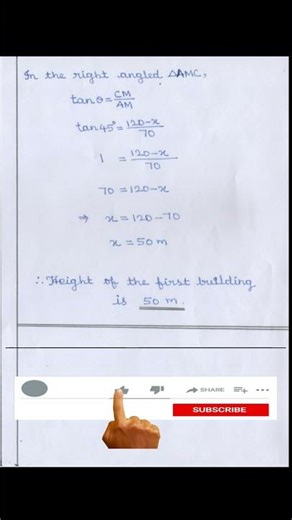 In the right angled ΔAMC,
tanθ = CM/AM
tan45° = 120-x/70
1 = 120-x/70
70 = 120-x
⇒ x = 120-70
x = 50 m
∴ Height of the first building
is 50 m.
SHARE
SUBSCRIBE